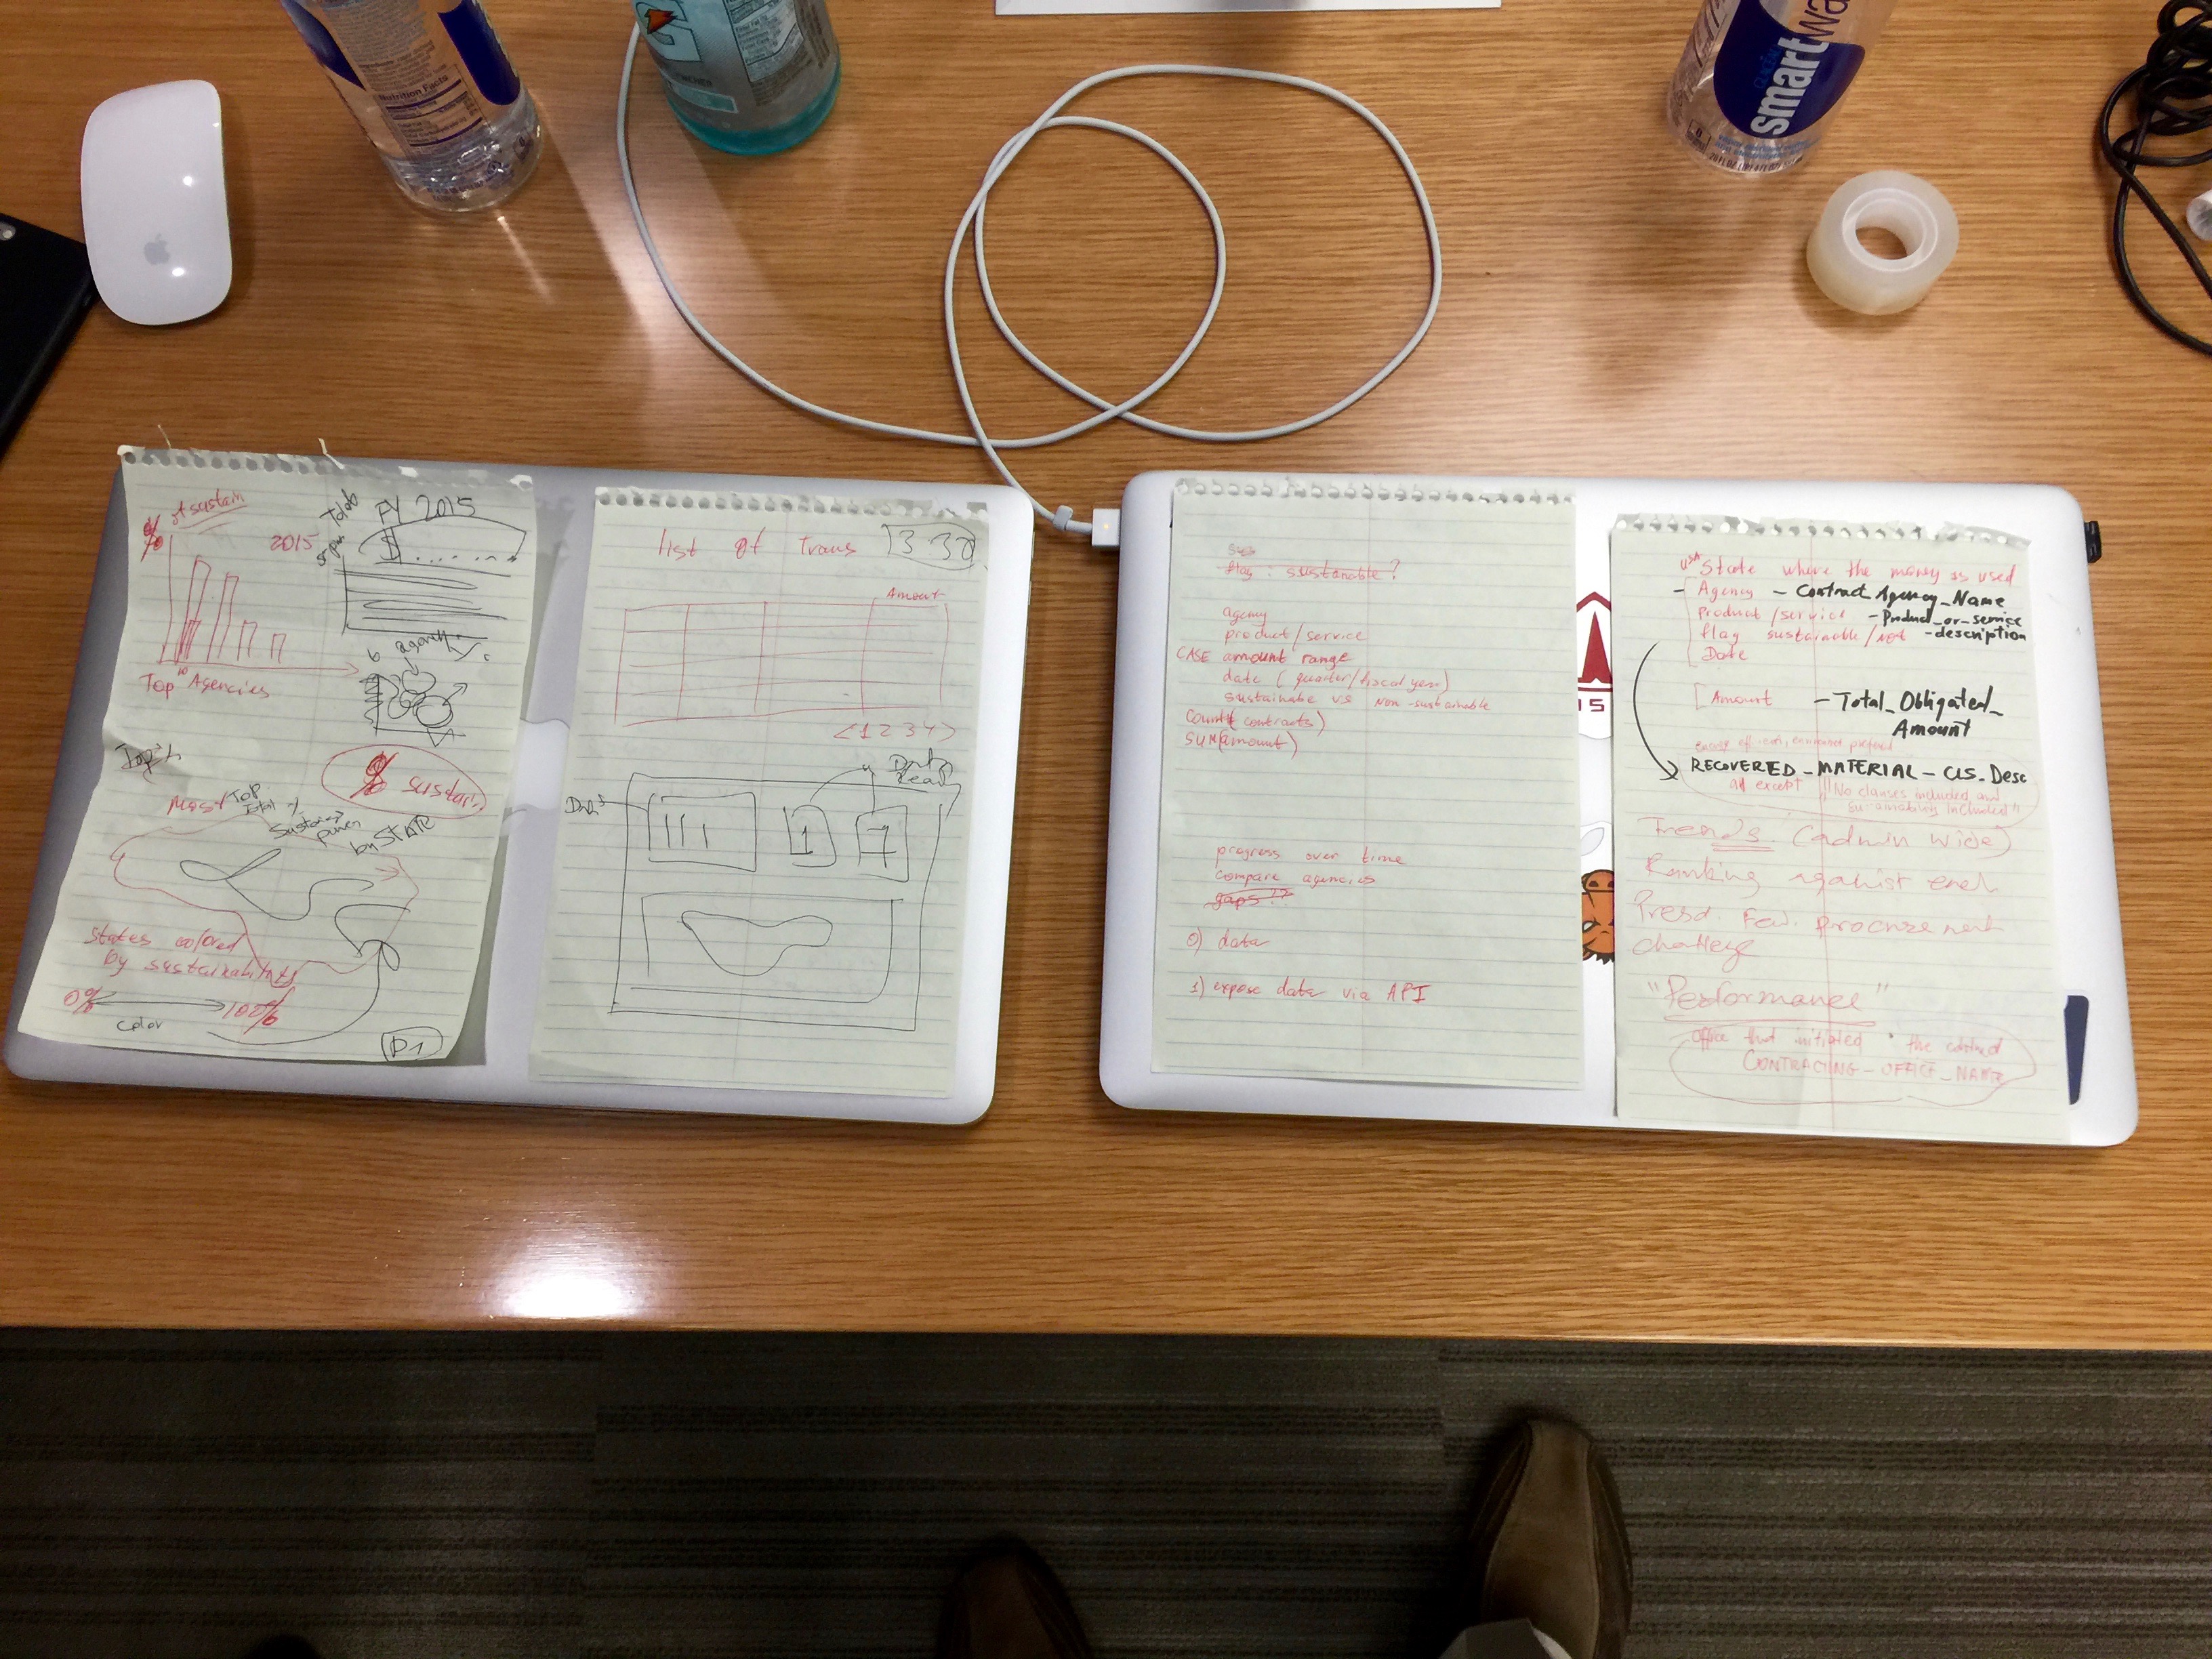 Nutrition Facts
smartwa
% of sustain
2015
Top 10 Agencies
FY 2015
$
agency
% sustain
Most Top
by STATE
States colored
by sustainability
0% 100%
color
P1
list of trans
13 30
Amount
<1 2 3 4>
Data
Read
1
7
flag : sustainable?
agency
product/service
CASE amount range
date (quarter/fiscal year)
sustainable vs Non-sustainable
count(contracts)
SUM(amount)
progress over time
compare agencies
gaps??
0) data
1) expose data via API
15
USA State where the money is used
- Agency - Contract_Agency_Name
Product/service - Product_or_service
flag sustainable/not - description
Date
Amount - Total_Obligated_
Amount
RECOVERED_MATERIAL_CLS_Desc
all except "No clauses included and
sustainability included"
Trends. (admin wide)
Ranking against each
Presd. Fed. procurement
challenge
"Performance"
Office that initiated the contract
CONTRACTING_OFFICE_NAME